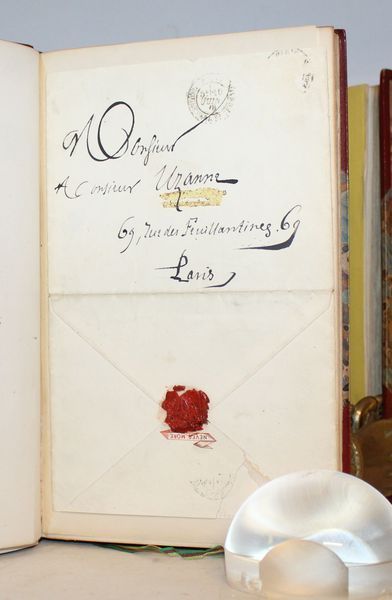 Monsieur
Monsieur Uzanne
69, Rue des Feuillantines. 69
Paris
NEVER MORE